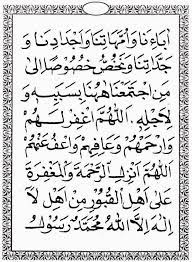 اٰبَاءَنَا وَاُمَّهَاتِنَا وَاَجْدَادِنَا وَ
جَدَّاتِنَا وَنَخُصُّ خُصُوْصًا اِلٰى
مَنِ اجْتَمَعْنَا هٰهُنَا بِسَبَبِهِ وَ
لِاَجْلِهِ. اَللّٰهُمَّ اغْفِرْلَهُمْ
وَارْحَمْهُمْ وَعَافِهِمْ وَاعْفُ عَنْهُمْ
اَللّٰهُمَّ اَنْزِلِ الرَّحْمَةَ وَالْمَغْفِرَةَ
عَلٰى اَهْلِ الْقُبُوْرِ مِنْ اَهْلِ لَا
اِلٰهَ اِلَّا اللهُ مُحَمَّدٌ رَسُوْلُ